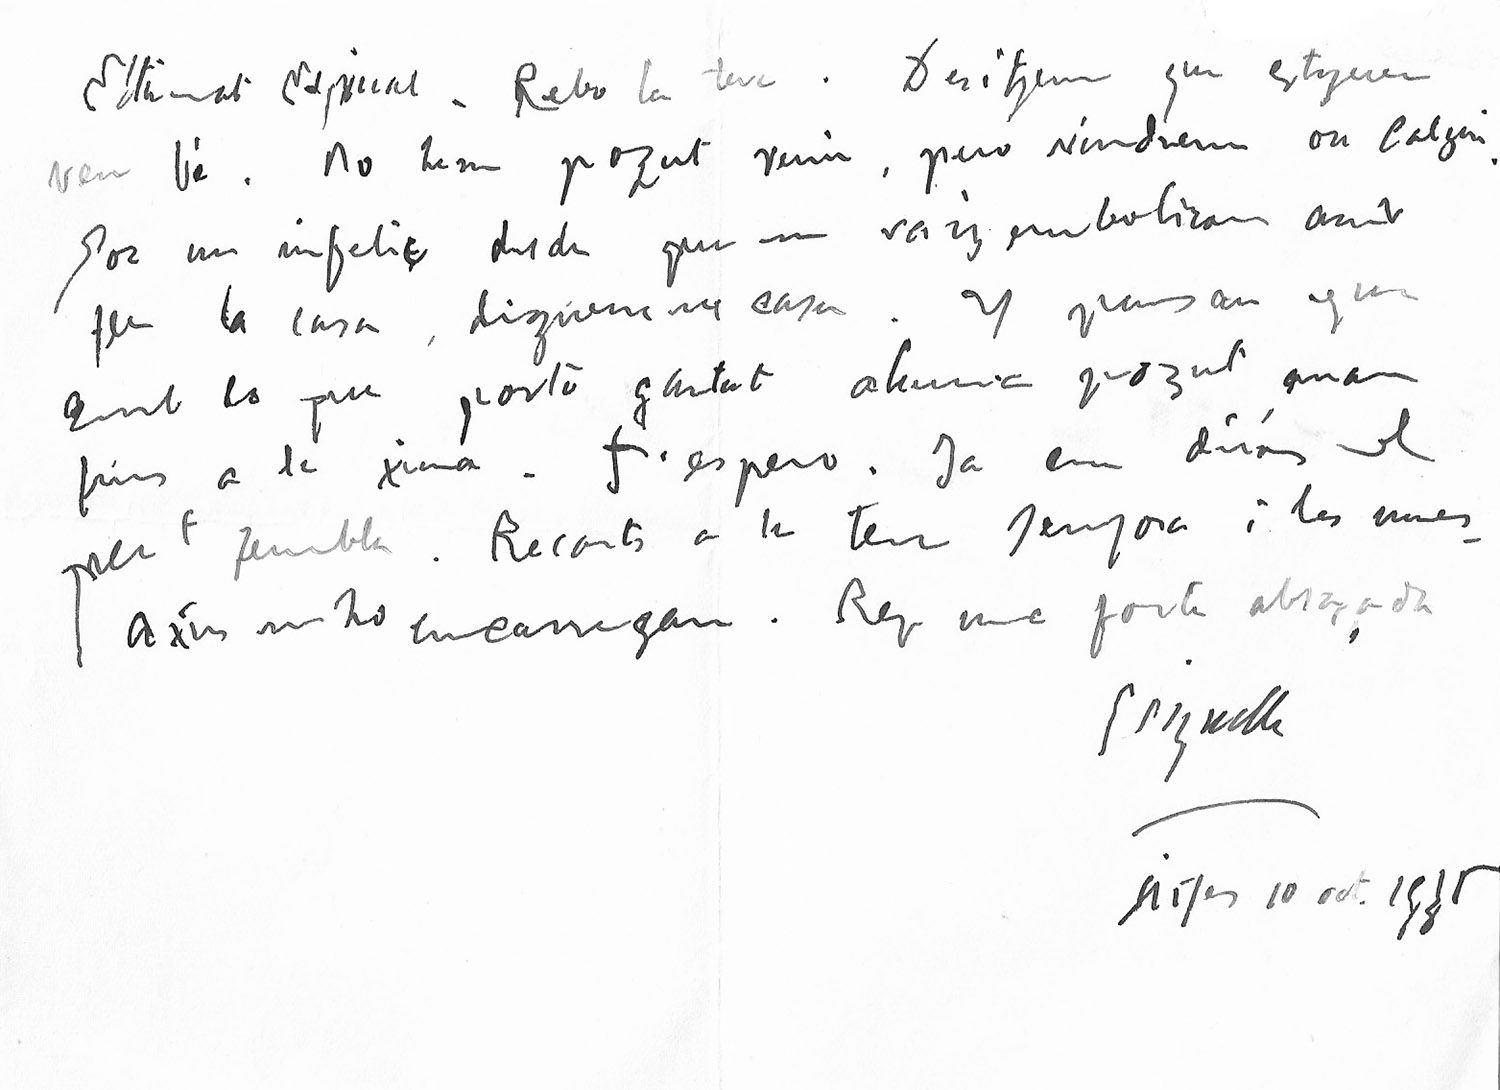 Estimat Espinal. Rebo la teva. Desitjem que estigueu
ven bé. No hem pogut venir, però vindrem on calgui.
Soc un infeliç desde que em vaig embolicar amb
fer la casa, diguem-ne casa. I pensar que
amb lo que porto gastat hauria pogut anar
fins a la xina. T'espero. Ja em diràs el
que t sembla. Records a la teva senyora i les meves
Axis m'ho encarreguen. Rep una forta abraçada
Sitges 10 oct.